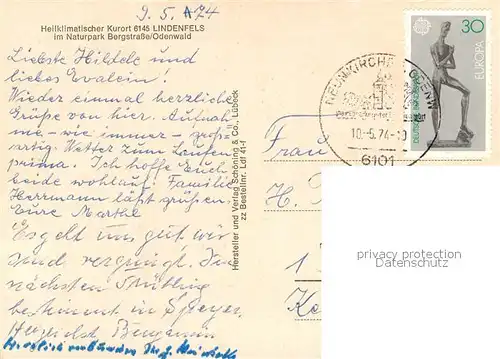 9. 5. 74
Heilklimatischer Kurort 6145 LINDENFELS
im Naturpark Bergstraße/Odenwald
Liebste Hildele und
liebes Evalein!
Wieder einmal herzliche
Grüße von hier. Aufnah-
me - wie immer - groß-
artig. Wetter zum Laufen
prima. Ich hoffe Euch
beide wohlauf. Familie
Herrmann läßt grüßen.
Eure Marthe
Es geht uns gut, wir
sind vergnügt. Im
nächsten Frühling
bestimmt in Speyer.
Herzlichst Benjamin
Hersteller und Verlag Schöning & Co., Lübeck
zz Bestellnr. Ldf 41-f
Frau
H.
1
NEUNKIRCHEN ODENW
10.-5.74-10
6101
30
EUROPA
DEUTSCHE BUNDESPOST
privacy protection
Datenschutz